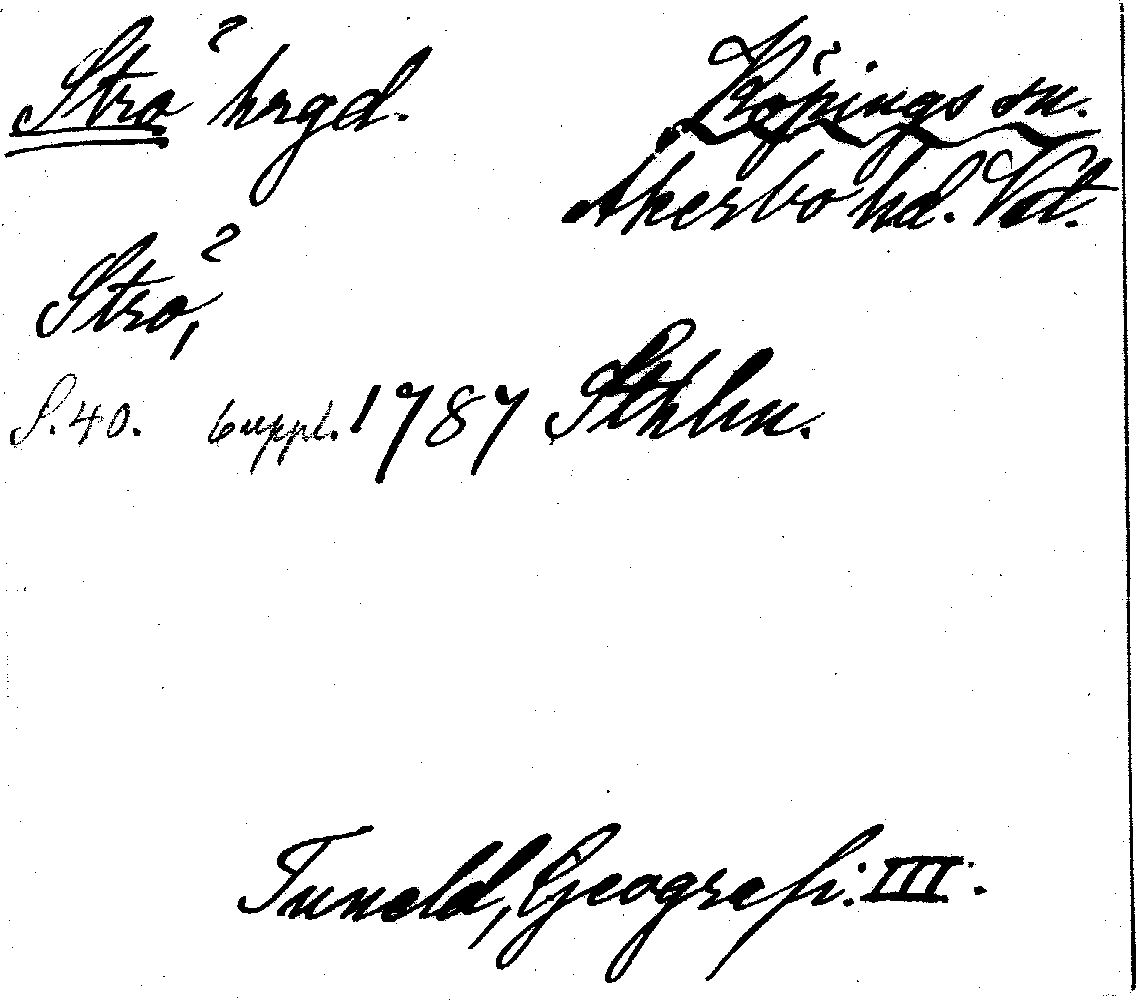 Strö hrgd. Köpings sn.
Åkerbo hd. Vstm.
Strö,
S. 40. 6 uppl. 1787 Sthlm.
Tuneld, Geografi. III.